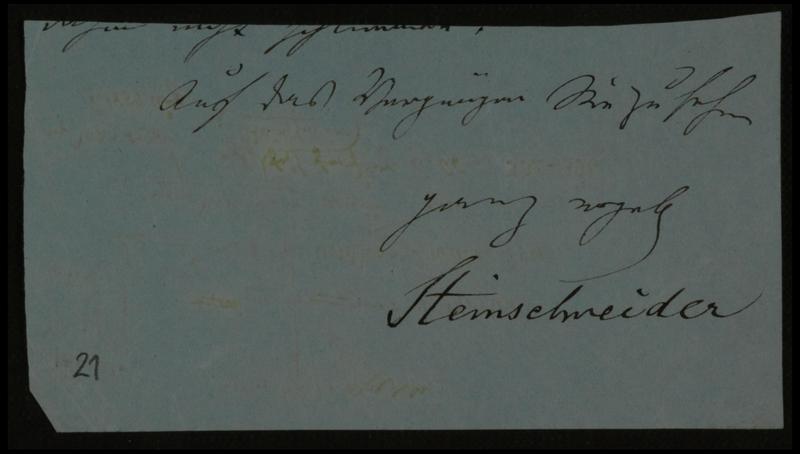 nicht schlimmer.
Auf das Vergnügen Sie zu sehen
ganz ergeb
Steinschneider
21